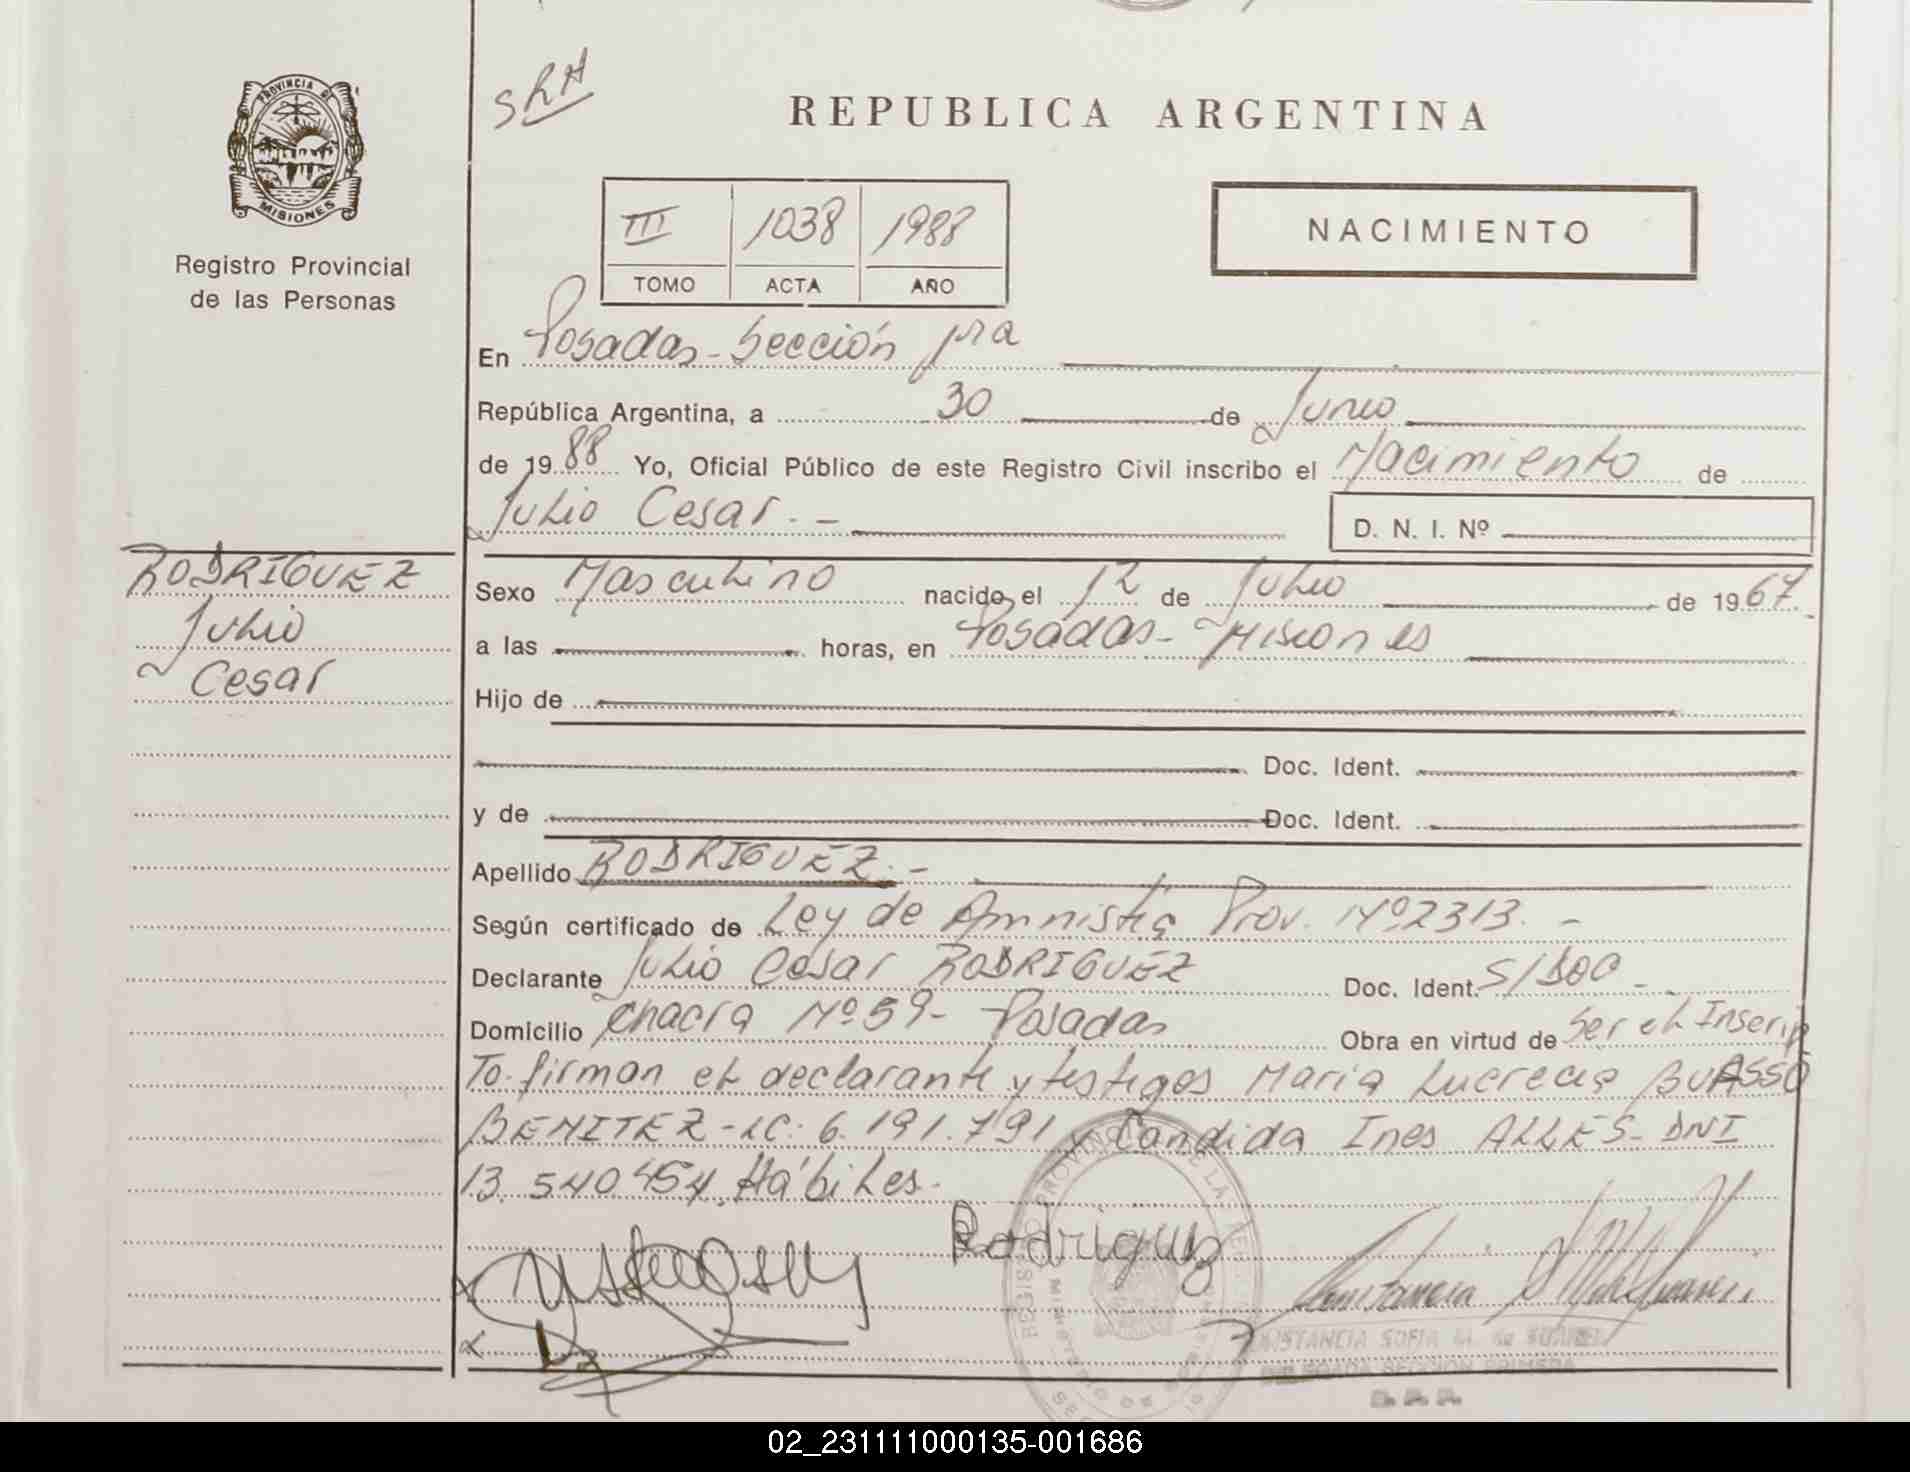 SRH
PROVINCIA DE
MISIONES
REPUBLICA ARGENTINA
III 1038 1988
TOMO ACTA AÑO
NACIMIENTO
Registro Provincial
de las Personas
En Posadas - Sección 1ra
República Argentina, a 30 de Junio
de 1988 Yo, Oficial Público de este Registro Civil inscribo el Nacimiento de
Julio Cesar. -
D. N. I. Nº
RODRIGUEZ
Julio
Cesar
Sexo Masculino nacido el 12 de Julio de 1967.
a las horas, en Posadas - Misiones
Hijo de
Doc. Ident.
y de Doc. Ident.
Apellido RODRIGUEZ. -
Según certificado de Ley de Amnistia Prov. Nº 2313. -
Declarante Julio Cesar RODRIGUEZ Doc. Ident. S/DOC - .
Domicilio Chacra Nº 59 - Posadas Obra en virtud de Ser el Inscrip
To. firman el declarante y testigos Maria Lucrecia BUASSO
BENITEZ - LC: 6.191.791 y Candida Ines ALLES - DNI
13.540.454. Hábiles.
Rodriguez
CONSTANCIA SOFIA M. de SUAREZ
DELEGADA SECCION PRIMERA
02_231111000135-001686